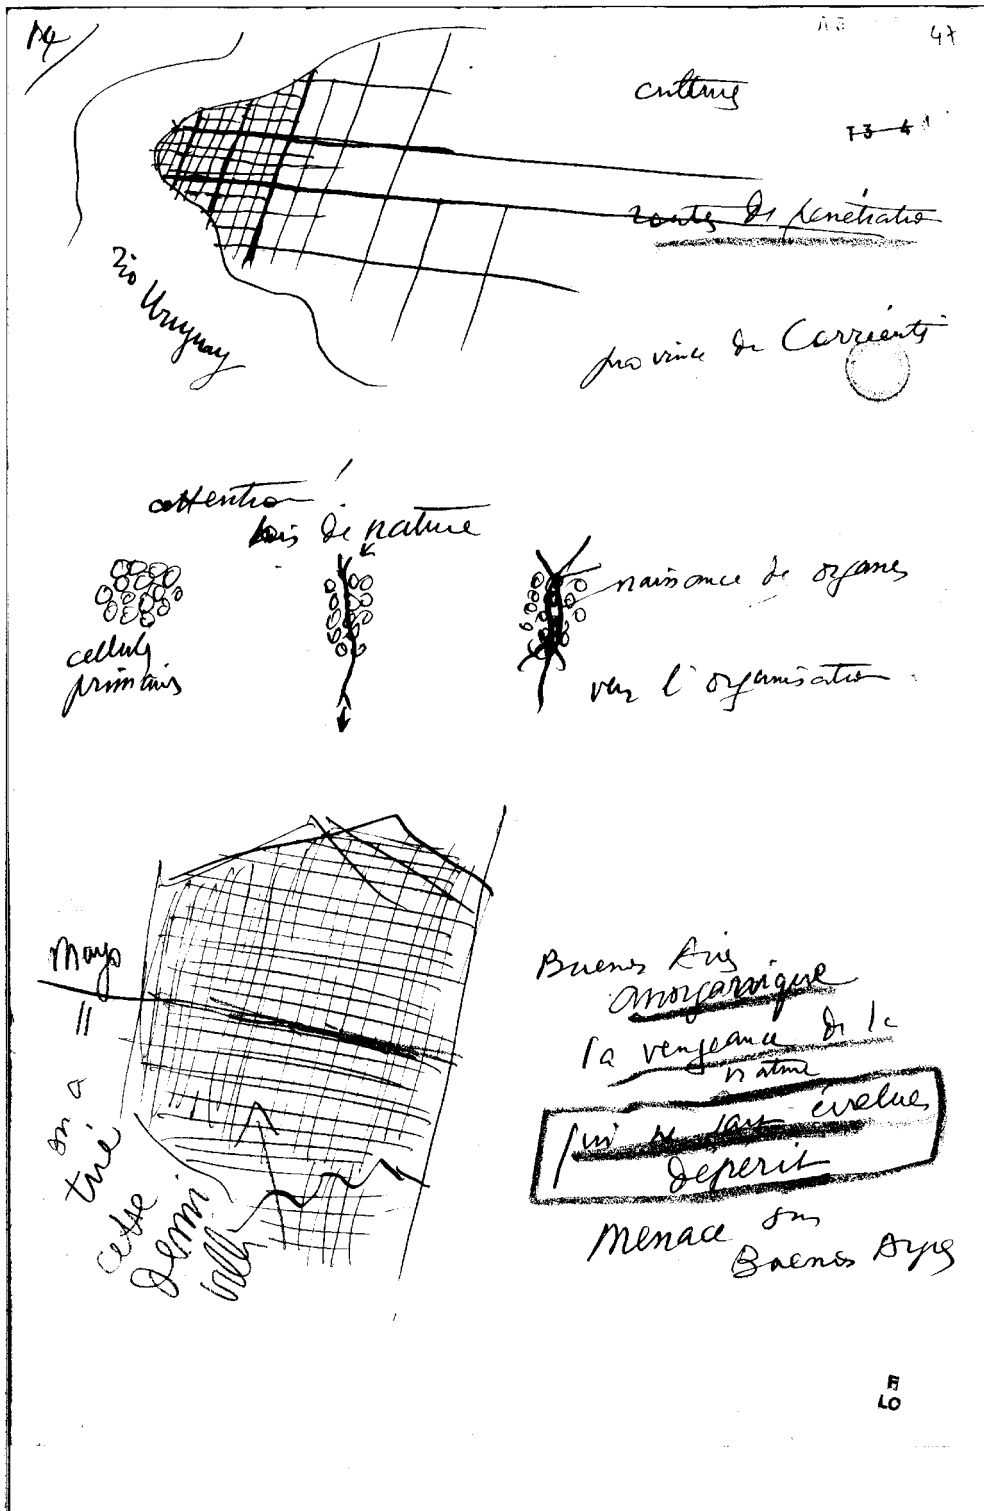 47
cultures
T 3-4
routes de pénétration
rio Uruguay
province de Corrientes
attention !
lois de nature
cellules
primaires
naissance des organes
vers l'organisation
Mayo
=
on a
tué
cette
demi
ville
Buenos Aires
anorganique
la vengeance de la
nature
qui ne sait évoluer
dépérit
Menace sur
Buenos Ayres
F
LO